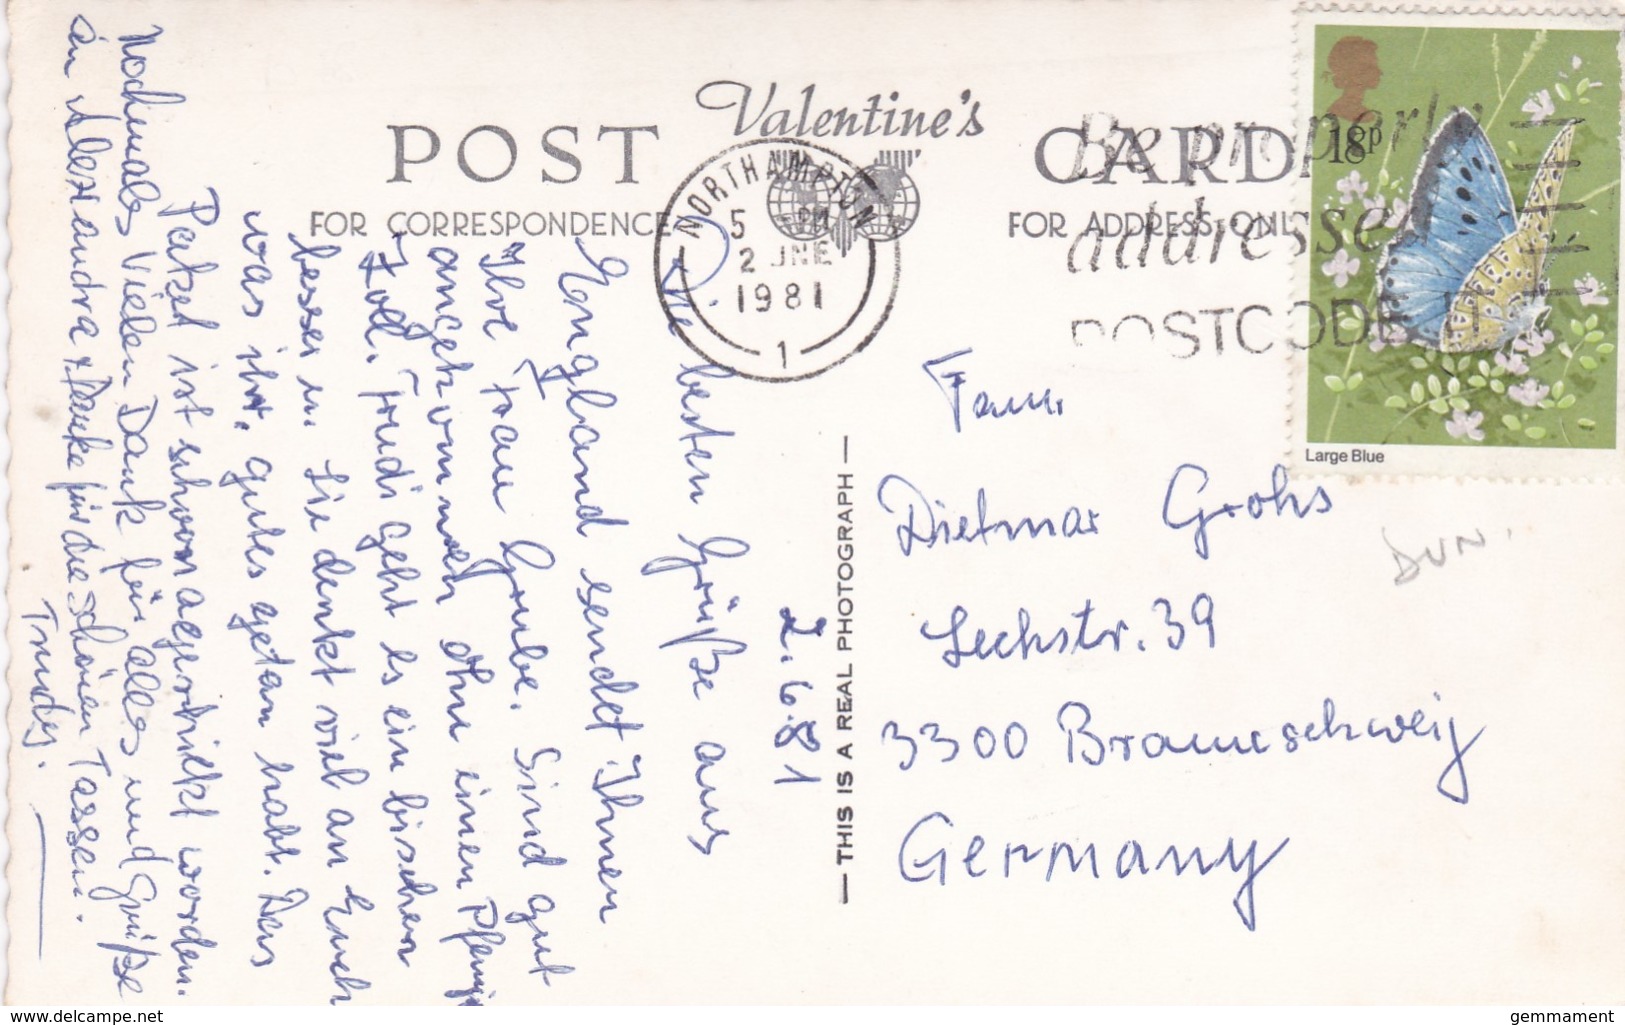 Valentine's
POST CARD
FOR CORRESPONDENCE
FOR ADDRESS ONLY
NORTHAMPTON
5 PM
2 JNE
1981
1
Be properly
addressed
POSTCODE IT
18p
Large Blue
— THIS IS A REAL PHOTOGRAPH —
2.6.81
Die besten Grüße aus
England sendet Ihnen
Ihre Frau Grube. Sind gut
angekommen ohne einen Pfennig
Zoll. Trudi geht es ein bischen
besser u. Sie denkt viel an Euch
was ihr gutes getan habt. Das
Paket ist schon abgeschickt worden.
Nochmals Vielen Dank für alles und Grüße
an Alexandra + Danke für die schönen Tassen.
Trudy.
Fam.
Dietmar Grohs
Lechstr. 39
3300 Braunschweig
Germany
DUN.
delcampe.net
gemmament